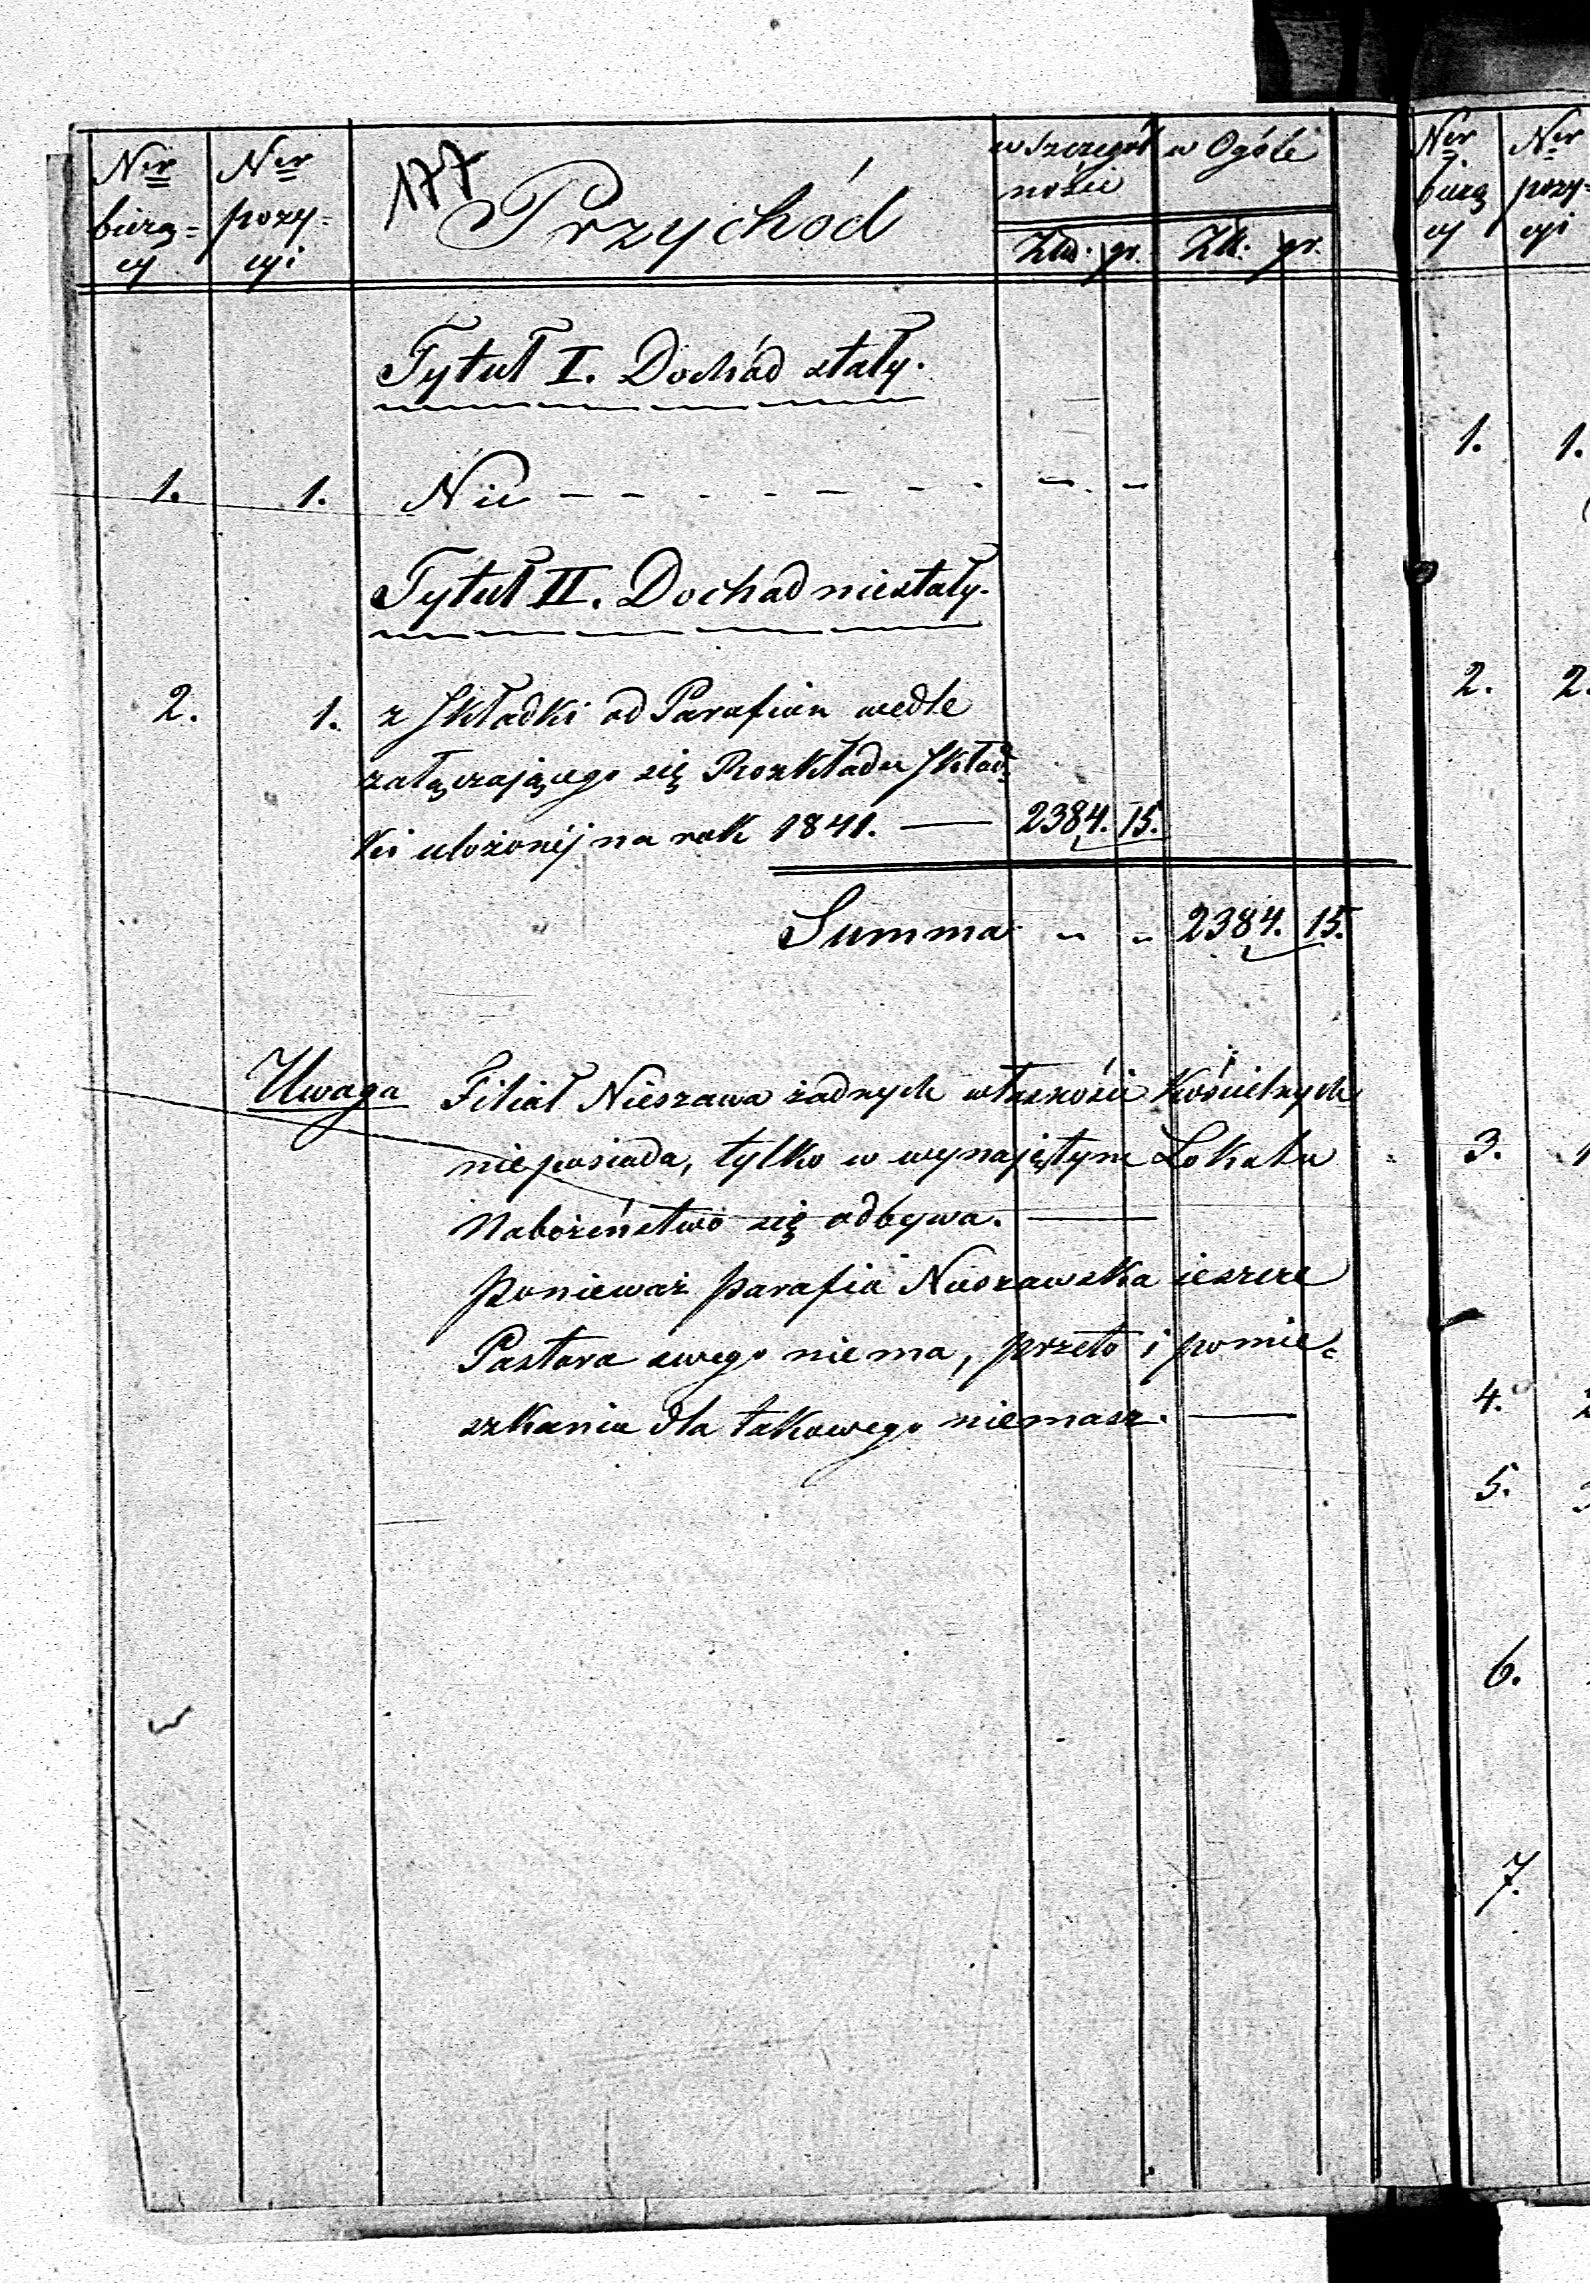 177
Ner bieżą= cy
Ner pozy= cyi
Przychód
w szczegól ności
w Ogóle
Złp. gr. Zł. gr.
Tytuł I. Dochód stały.
1. 1. Nic - - - - - - - - -
Tytuł II. Dochód niestały.
2. 1. z Składki od Parafian wedle
załączającego się Rozkładu Skład=
ki ułożonéj na rok 1841. — 2384. 15.
Summa „ „ 2384. 15.
Uwaga Filiał Nieszawa żadnych własności Kościelnych
nieposiada, tylko w wynajętym Lokalu
Nabożeństwo się odbywa. —
Ponieważ parafia Nieszawska ieszcze
Pastora swego niema, przeto i pomie=
szkania dla takowego niemasz. —
Ner bieżą cy
Ner pozy= cyi
1. 1.
2. 2.
3.
4.
5.
6.
7.